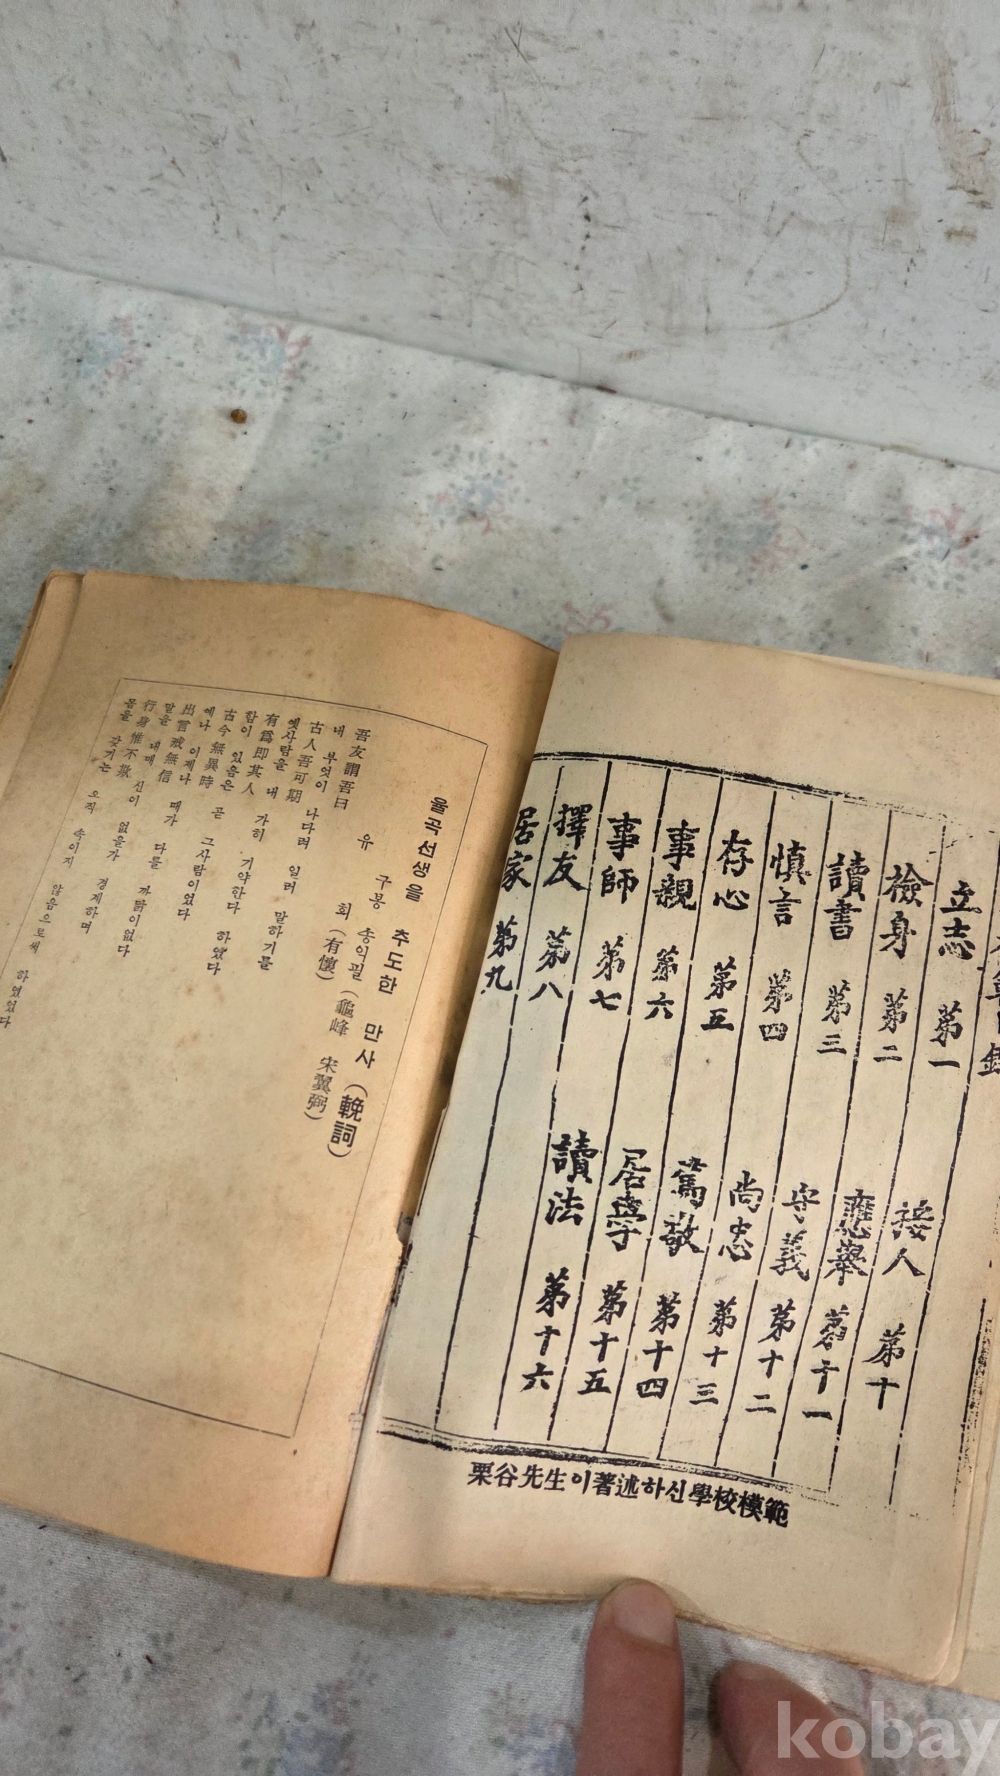 章目錄
立志 第一
檢身 第二 接人 第十
讀書 第三 應擧 第十一
愼言 第四 守義 第十二
存心 第五 尙忠 第十三
事親 第六 篤敬 第十四
事師 第七 居學 第十五
擇友 第八 讀法 第十六
居家 第九
栗谷先生이著述하신學校模範
율곡선생을 추도한 만사 (輓詞)
구봉 송익필 (龜峰 宋翼弼)
유 회 (有懷)
吾友謂吾曰
내 부엇이 나다려 일러 말하기를
古人吾可期
옛사람을 내 가히 기약한다 하였다
有爲卽其人
함이 있음은 곧 그사람이었다
古今無異時
예나 이제나 때가 다를 까닭이없다
出言戒無信
말을 내매 신이 없을가 경계하며
行身惟不欺
몸을 갖기는 오직 속이지 않음으로써 하였었다
kobay